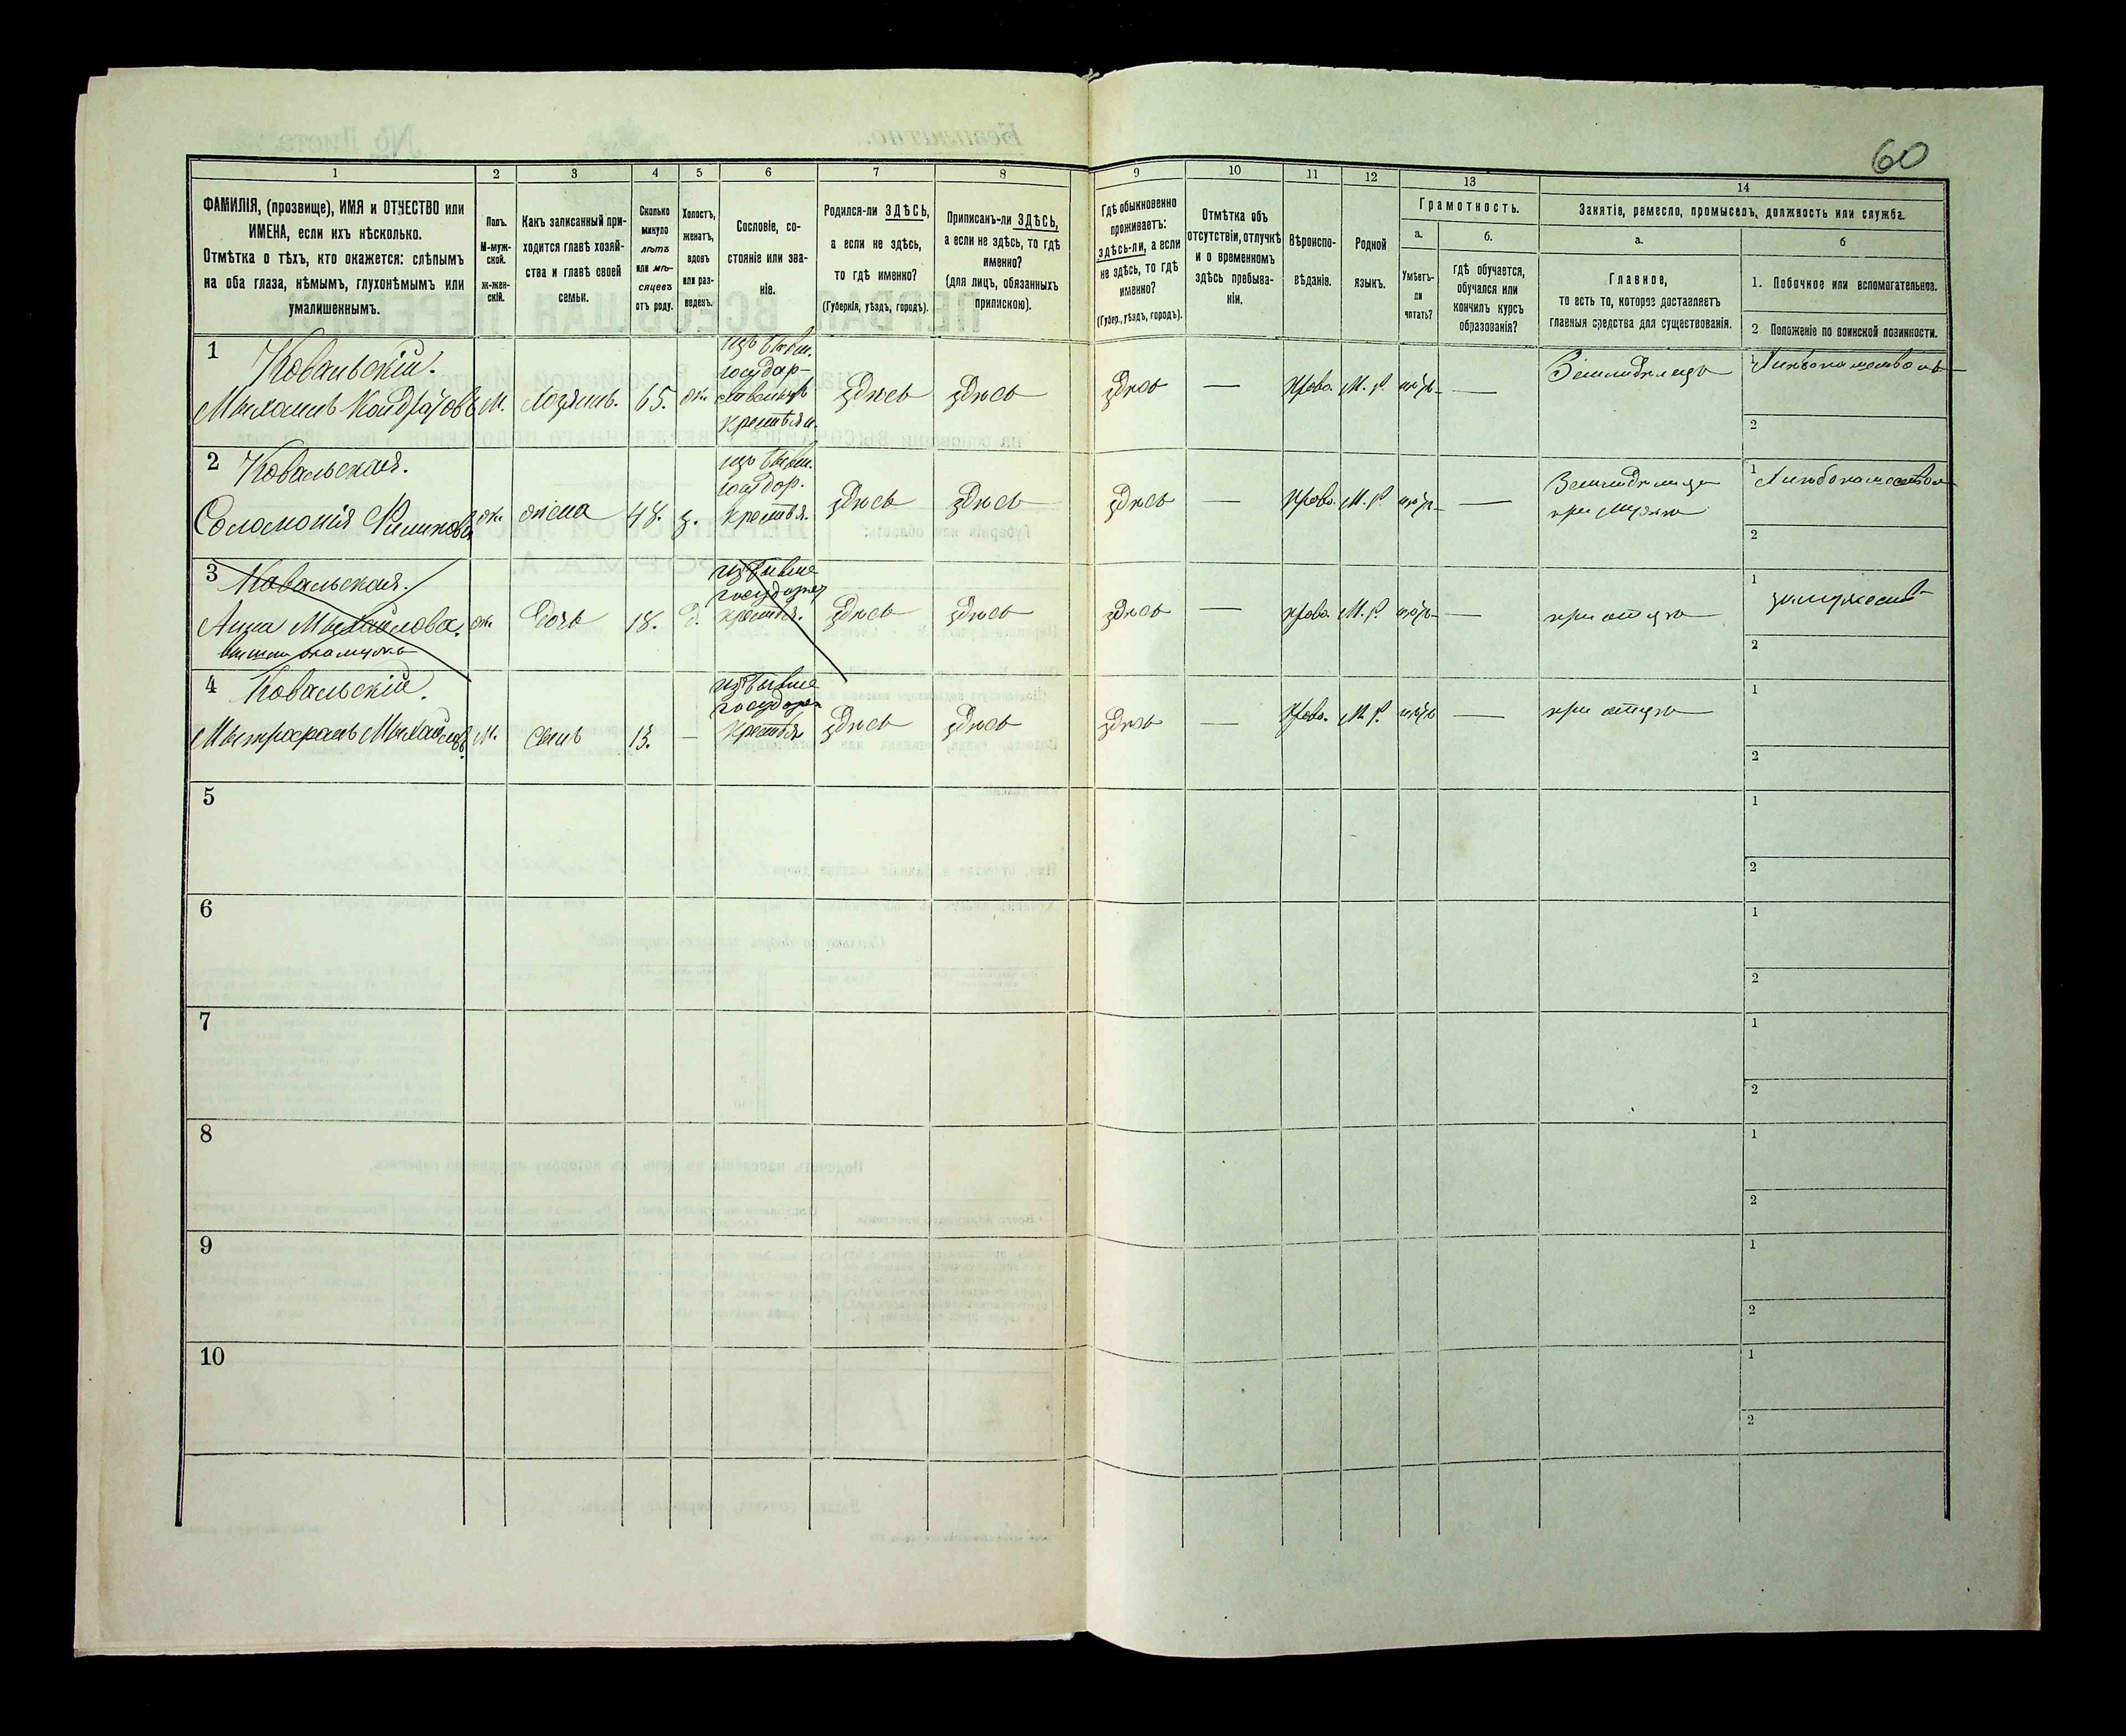 60
1
2
3
4
5
6
7
8
9
10
11
12
13
14
ФАМИЛІЯ, (прозвище), ИМЯ и ОТЧЕСТВО или
ИМЕНА, если ихъ нѣсколько.
Отмѣтка о тѣхъ, кто окажется: слѣпымъ
на оба глаза, нѣмымъ, глухонѣмымъ или
умалишеннымъ.
Полъ.
М-муж-
ской.
Ж-жен-
скій.
Какъ записанный при-
ходится главѣ хозяй-
ства и главѣ своей
семьи.
Сколько
минуло
лѣтъ
или мѣ-
сяцевъ
отъ роду.
Холостъ,
женатъ,
вдовъ
или раз-
веденъ.
Сословіе, со-
стояніе или зва-
ніе.
Родился-ли ЗДѢСЬ,
а если не здѣсь,
то гдѣ именно?
(Губернія, уѣздъ, городъ).
Приписанъ-ли ЗДѢСЬ,
а если не здѣсь, то гдѣ
именно?
(для лицъ, обязанныхъ
припискою).
Гдѣ обыкновенно
проживаетъ:
здѣсь-ли, а если
не здѣсь, то гдѣ
именно?
(Губер., уѣздъ, городъ).
Отмѣтка объ
отсутствіи, отлучкѣ
и о временномъ
здѣсь пребыва-
ніи.
Вѣроиспо-
вѣданіе.
Родной
языкъ.
Грамотность.
а.
б.
Умѣетъ-
ли
читать?
гдѣ обучается,
обучался или
кончилъ курсъ
образованія?
Занятіе, ремесло, промыселъ, должность или служба.
а.
б
Главное,
то есть то, которое доставляетъ
главныя средства для существованія.
1. Побочное или вспомогательное.
2 Положеніе по воинской повинности.
1 Ковальскій.
Михаилъ Кондратовъ М. хозяинъ. 65. ж.
изъ бывш.
государ-
ственныхъ
крестьян.
здѣсь здѣсь здѣсь — Право. М. Р. нѣтъ — Земледѣлецъ
1
2
2 Ковальская.
Соломонія Филипова ж. жена 48. з.
изъ бывш.
государ.
крестья.
здѣсь здѣсь здѣсь — Право. М. Р. нѣтъ —
Земледѣлица
при мужѣ
1
2
3 Ковальская.
Анна Михайлова. ж. дочь 18. д.
изъ бывше
государ
крестья.
здѣсь здѣсь здѣсь — право. М. Р. нѣтъ — при отцѣ
1
2
4 Ковальскій.
Митрофанъ Михайловъ. М. сынъ 13. —
изъ бывше
государ
крестья
здѣсь здѣсь здѣсь — Право. М. Р. нѣтъ — при отцѣ
1
2
5
1
2
6
1
2
7
1
2
8
1
2
9
1
2
10
1
2